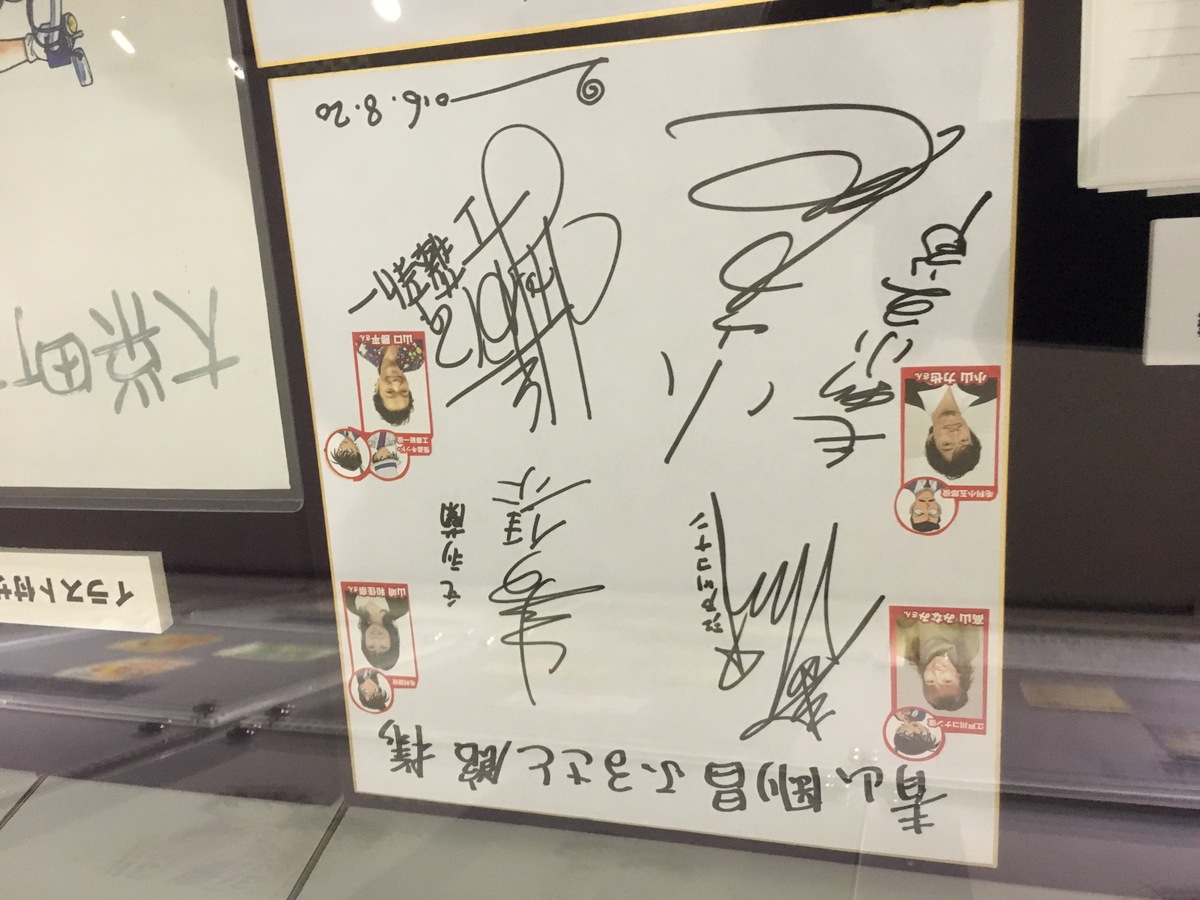 青山剛昌ふるさと館 様
江戸川コナン役
高山 みなみさん
江戸川コナン
毛利蘭役
山崎 和佳奈さん
毛利蘭
毛利小五郎役
小山 力也さん
毛利小五郎
怪盗キッド・
工藤新一役
山口 勝平さん
工藤新一
2016.8.20
イラスト付サ
大栄町